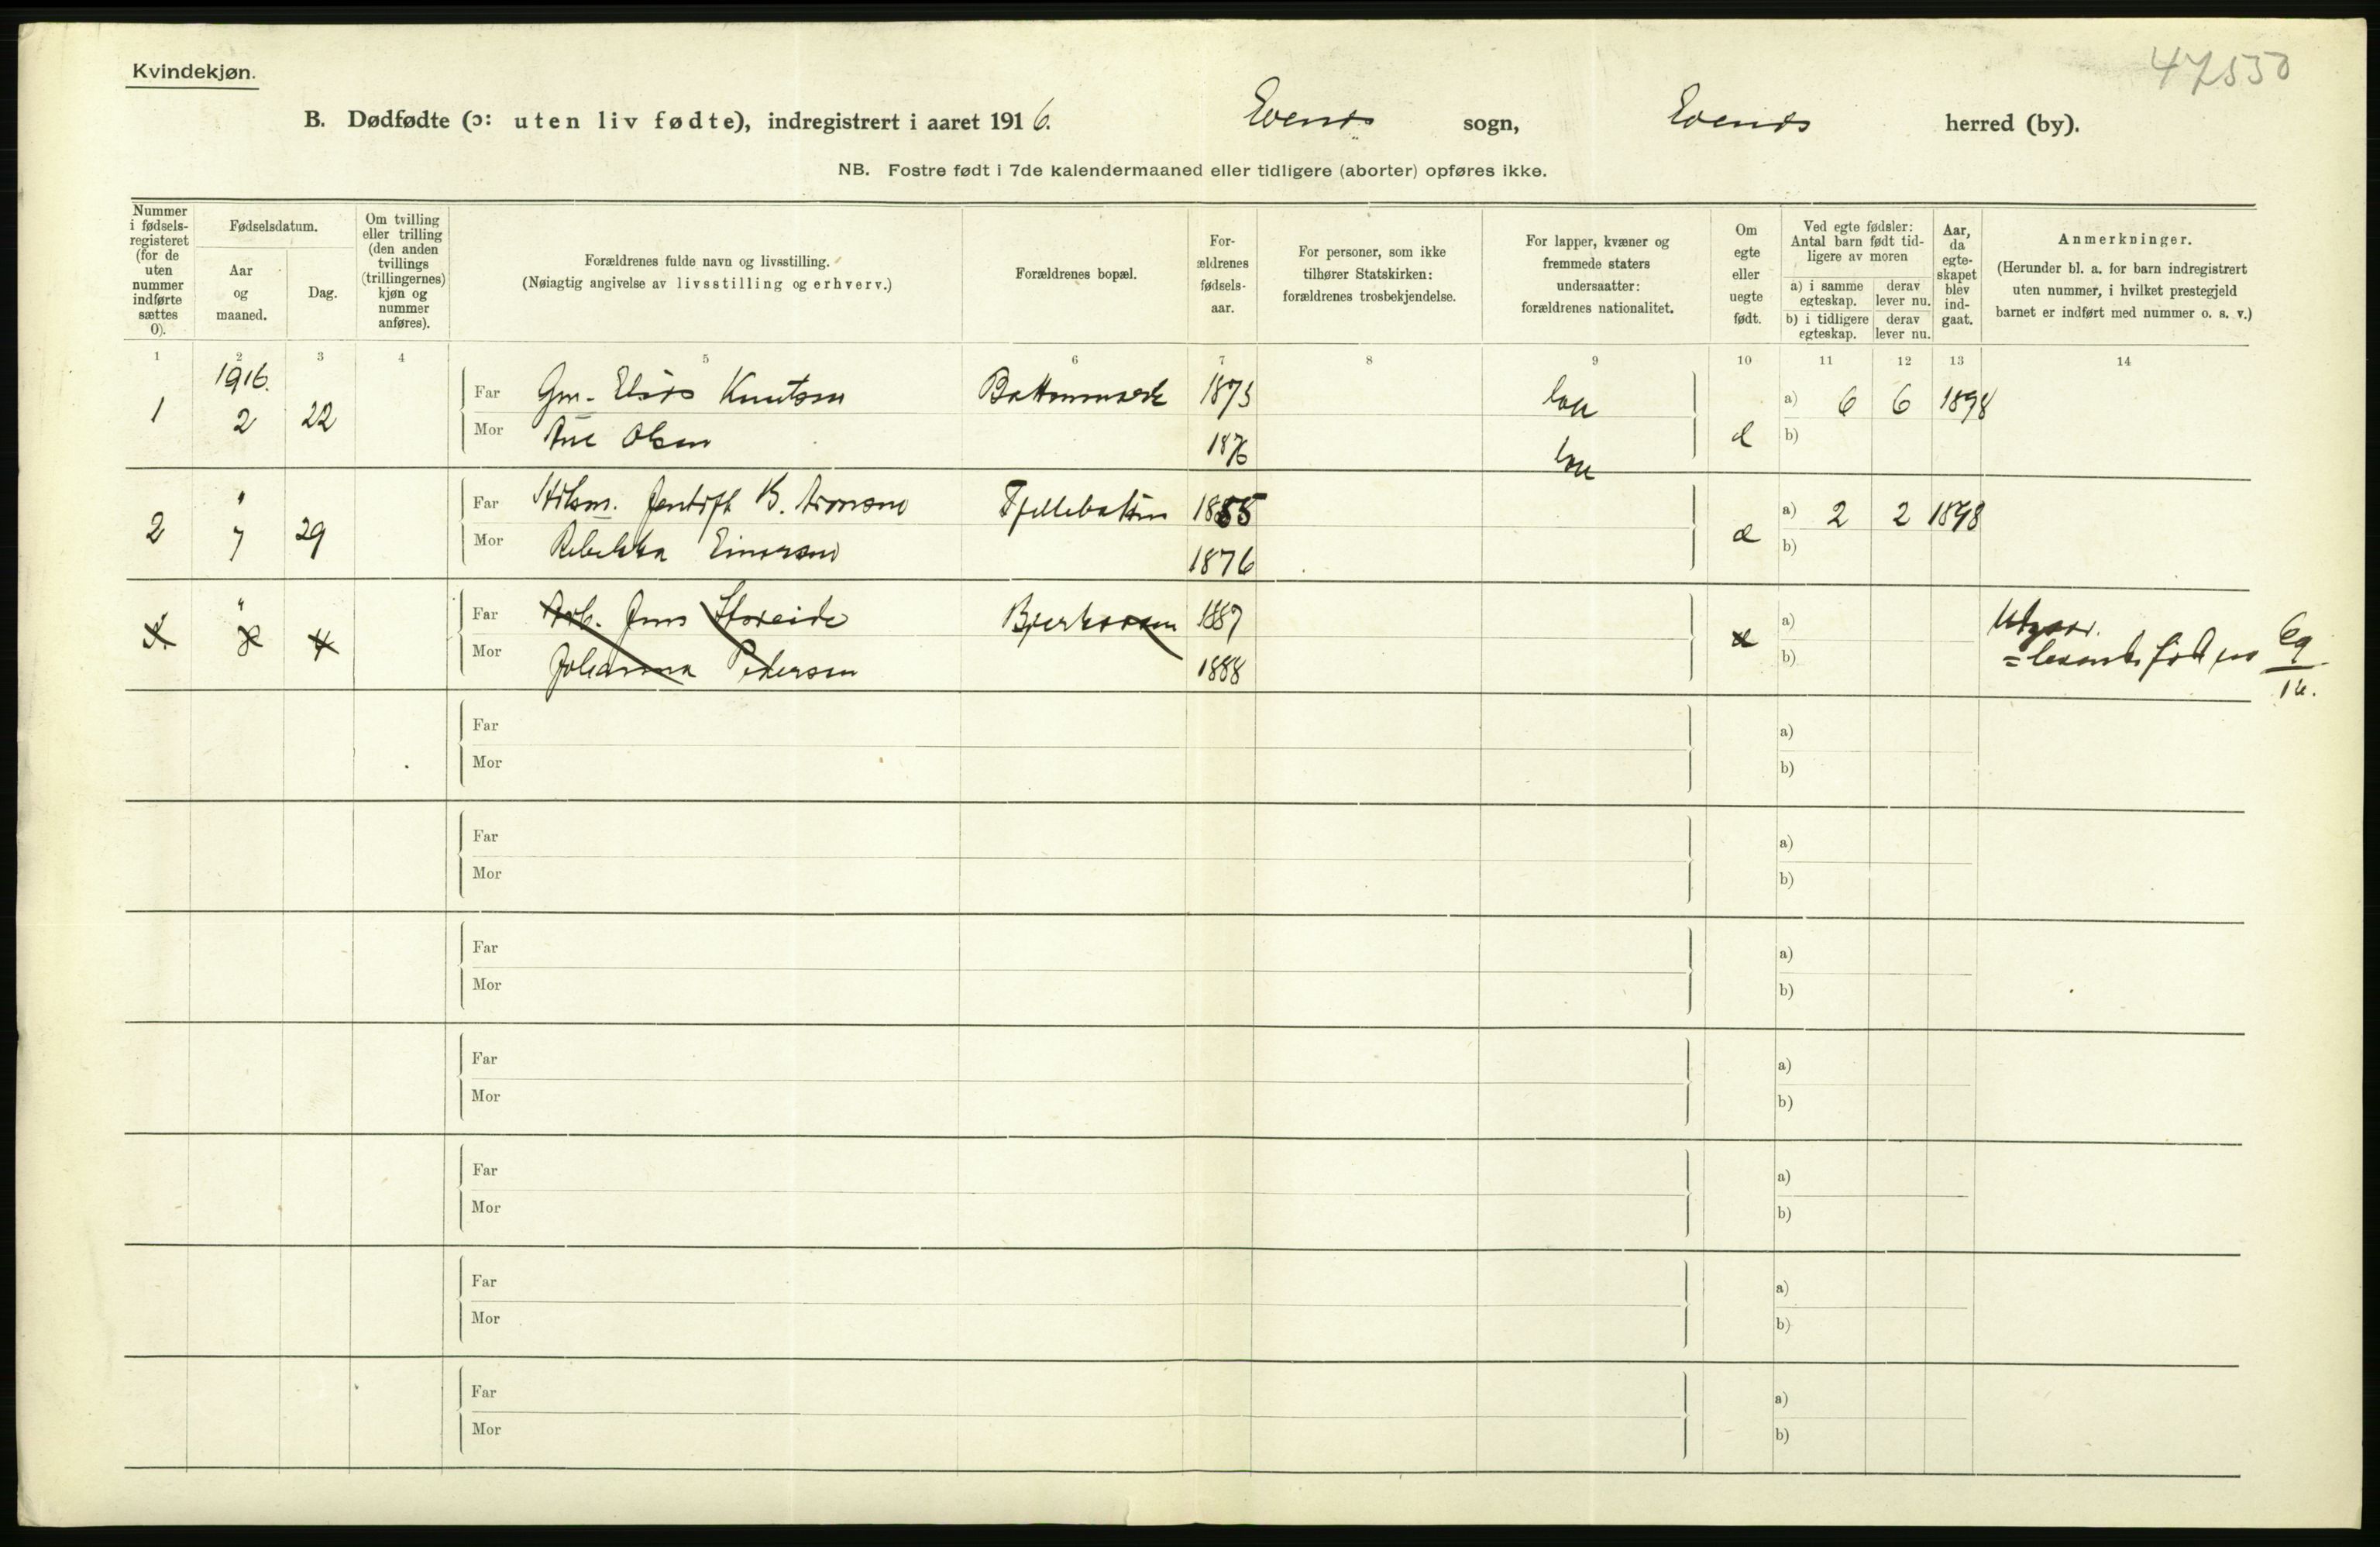 Kvindekjøn.
47550
B. Dødfødte (ɔ: uten liv fødte), indregistrert i aaret 1916. Evenes sogn, Evenes herred (by).
NB. Fostre født i 7de kalendermaaned eller tidligere (aborter) opføres ikke.
Nummer i fødselsregisteret (for de uten nummer indførte sættes 0).
Fødselsdatum.
Aar og maaned.
Dag.
Om tvilling eller trilling (den anden tvillings (trillingernes) kjøn og nummer anføres).
Forældrenes fulde navn og livsstilling.
(Nøiagtig angivelse av livsstilling og erhverv.)
Forældrenes bopæl.
Forældrenes fødselsaar.
For personer, som ikke tilhører Statskirken: forældrenes trosbekjendelse.
For lapper, kvæner og fremmede staters undersaatter: forældrenes nationalitet.
Om egte eller uegte født.
Ved egte fødsler: Antal barn født tidligere av moren
a) i samme egteskap.
derav lever nu.
b) i tidligere egteskap.
derav lever nu.
Aar, da egteskapet blev indgaat.
Anmerkninger.
(Herunder bl. a. for barn indregistrert uten nummer, i hvilket prestegjeld barnet er indført med nummer o. s. v.)
1 2 3 4 5 6 7 8 9 10 11 12 13 14
1916.
1 2 22 Far Gm. Knutsen 1873 a) 6 6 1898
Mor Ane Olsen 1876 b)
2 " 7 29 Far B. 1885 a) 2 2 1898
Mor Rebekka Einarsen 1876 b)
" 4 Far Arb. Jens 1887 a)
Mor Johanna Pedersen 1888 b)
Utgaar.
født 6/9 16.
Far a)
Mor b)
Far a)
Mor b)
Far a)
Mor b)
Far a)
Mor b)
Far a)
Mor b)
Far a)
Mor b)
Far a)
Mor b)